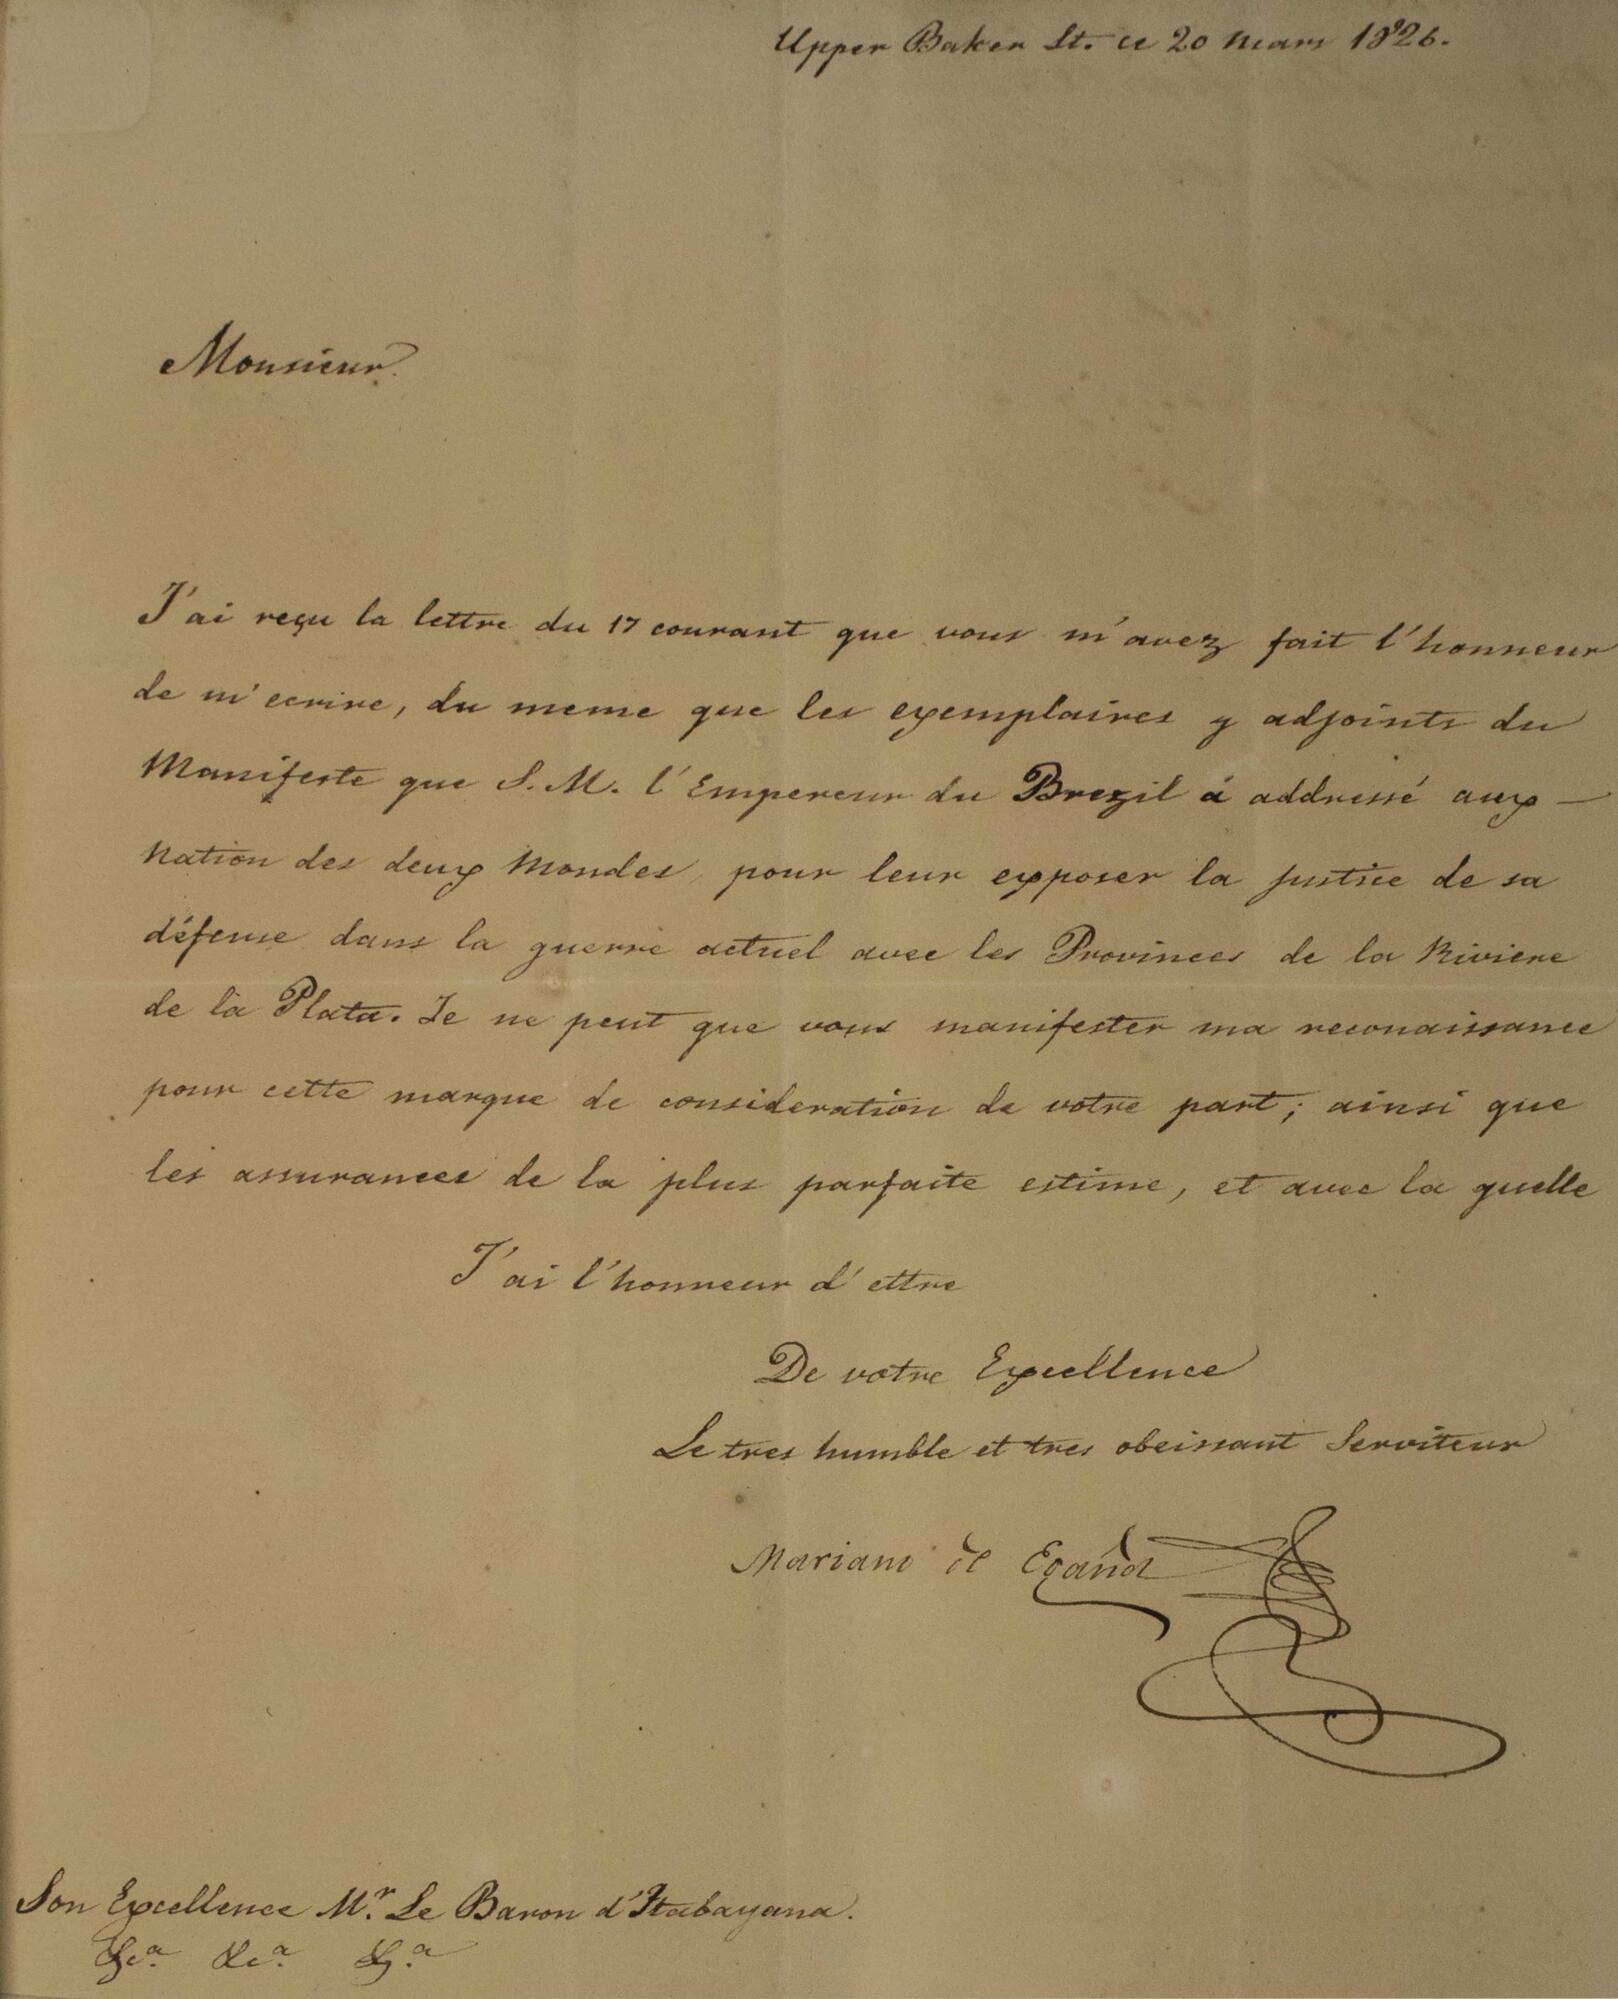 Upper Baker St. ce 20 Mars 1826.
Monsieur.
J'ai reçu la lettre du 17 courant que vous m'avez fait l'honneur
de m'ecrire, du meme que les exemplaires y adjoints du
Manifeste que S. M. l'Empereur du Brezil á addressé aux —
Nation des deux Mondes, pour leur exposer la justice de sa
défense dans la guerre actuel avec les Provinces de la Riviere
de la Plata. Je ne peut que vous manifester ma reconaissance
pour cette marque de consideration de votre part; ainsi que
les assurances de la plus parfaite estime, et avec la quelle
J'ai l'honneur d'ettre
De votre Excellence
Le tres humble et tres obeissant Serviteur
Mariano de Egaña
Son Excellence Mr. Le Baron d'Itabayana.
&ca. &ca. &ca.